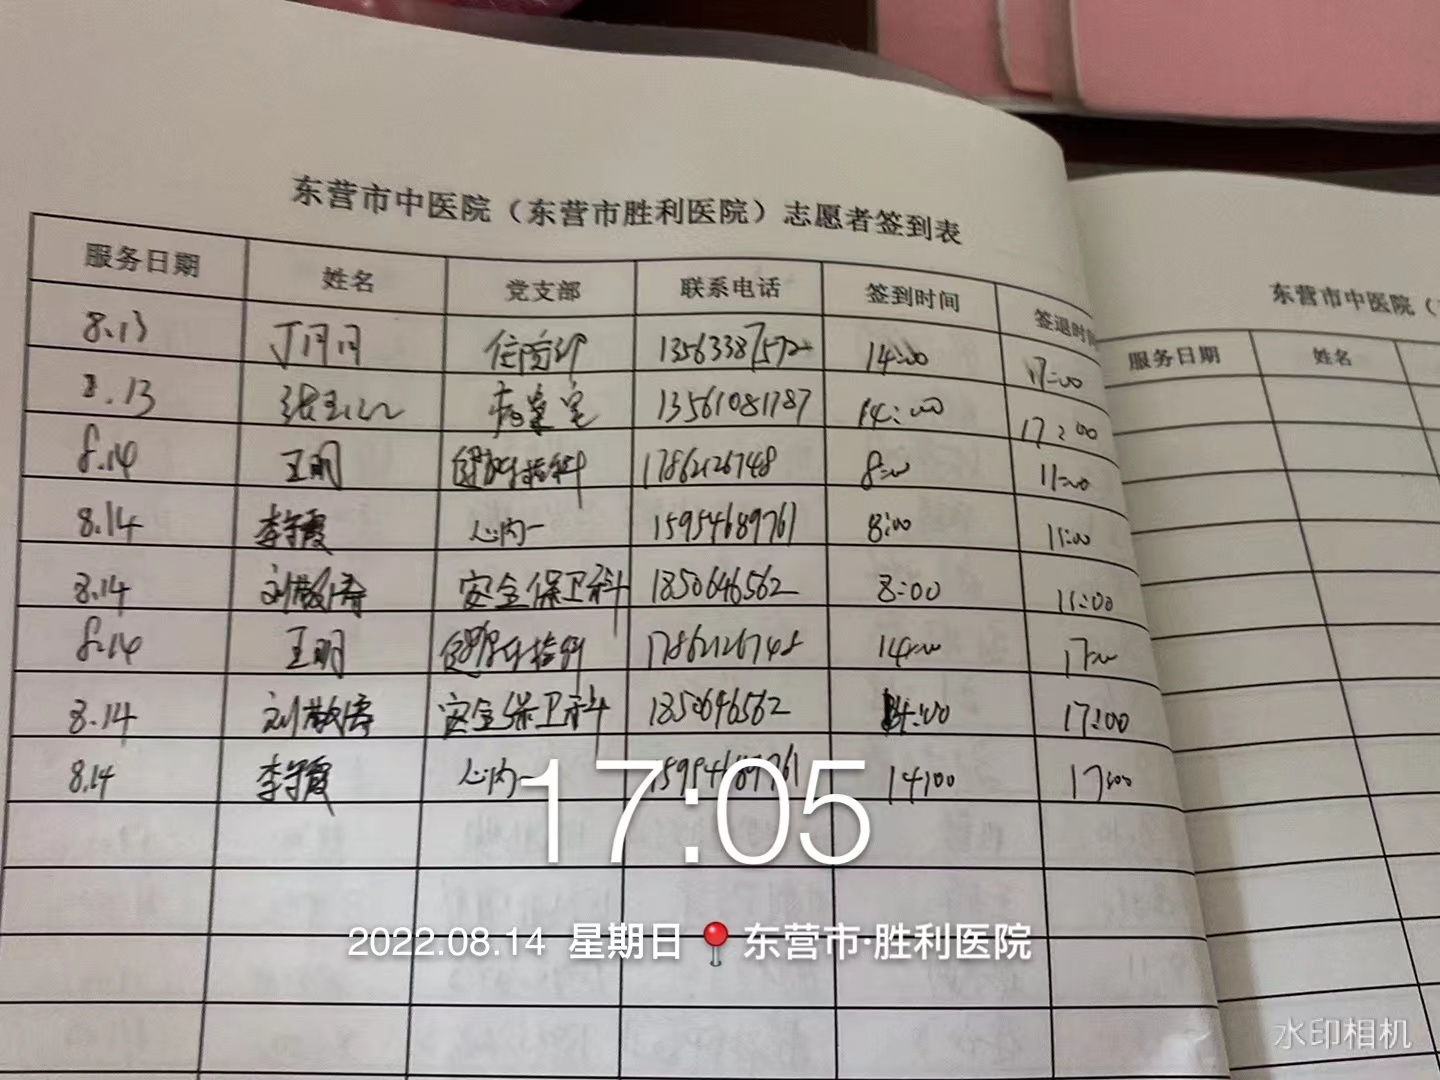 东营市中医院（东营市胜利医院）志愿者签到表
服务日期 姓名 党支部 联系电话 签到时间 签退时
8.13 丁月月 14:00 17:00
8.13 病案室 13561081787 14:00 17:00
8.14 王明 17862126748 8:00 11:00
8.14 李宁霞 心内一 15954689761 8:00 11:00
8.14 安全保卫科 1850646562 8:00 11:00
8.14 王明 17862126748 14:00 17:00
8.14 安全保卫科 1850646562 14:00 17:00
8.14 李宁霞 心内一 15954689761 14:00 17:00
东营市中医院（
服务日期 姓名
17:05
2022.08.14 星期日 东营市·胜利医院
水印相机